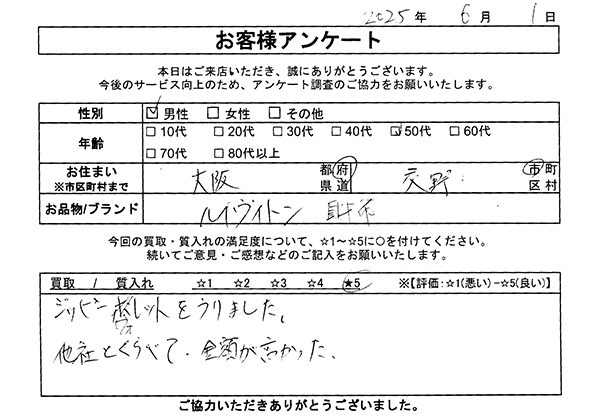 2025 年 6 月 1 日
お客様アンケート
本日はご来店いただき、誠にありがとうございます。
今後のサービス向上のため、アンケート調査のご協力をお願いいたします。
性別 ☑ 男性 □ 女性 □ その他
年齢 □ 10代 □ 20代 □ 30代 □ 40代 ☑ 50代 □ 60代
□ 70代 □ 80代以上
お住まい ※市区町村まで 大阪 都府県道 交野 市町区村
お品物/ブランド ルイヴィトン 財布
今回の買取・質入れの満足度について、☆1～☆5に○を付けてください。
続いてご意見・ご感想などのご記入をお願いいたします。
買取 / 質入れ ☆1 ☆2 ☆3 ☆4 ★5 ※【評価:☆1(悪い)－☆5(良い)】
ジッピーウォレットをうりました。
他社とくらべて、金額が高かった、
ご協力いただきありがとうございました。